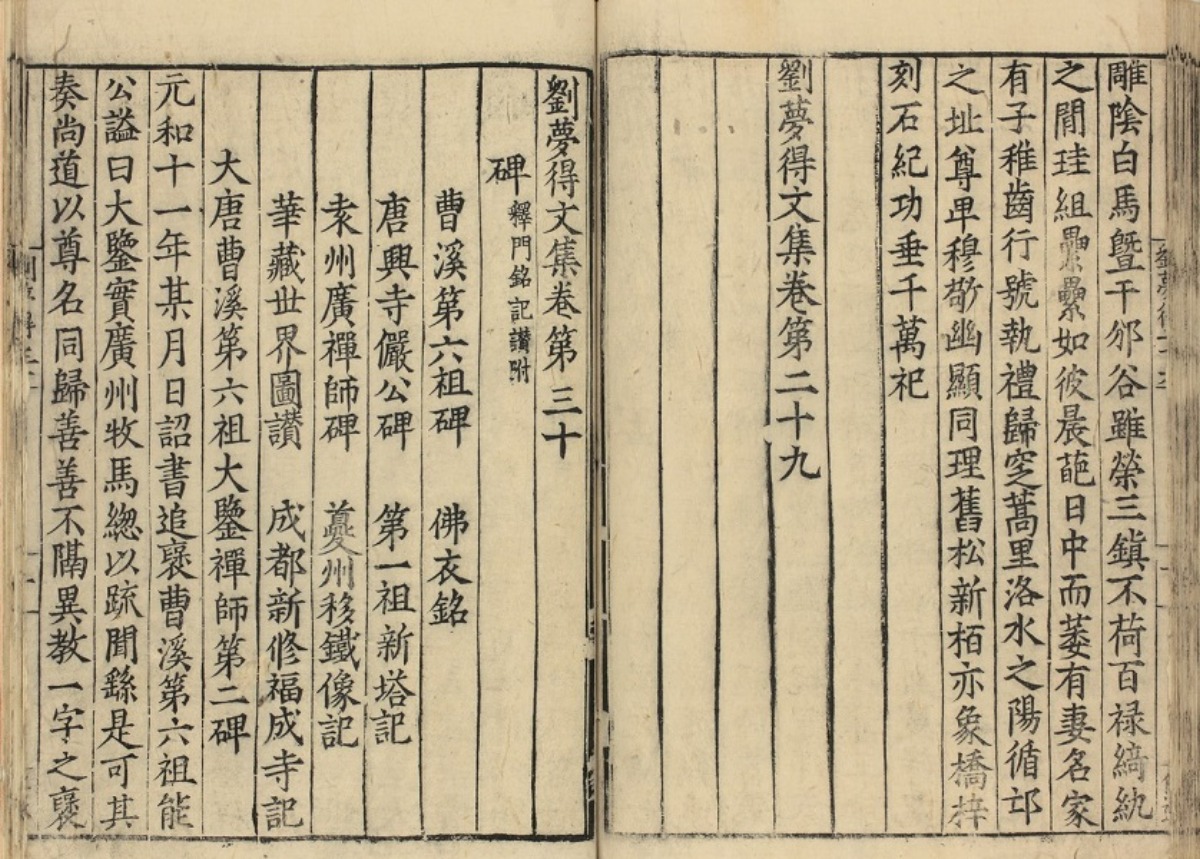 雕陰白馬暨干邠谷雖榮三鎮不荷百禄綺紈
之閒珪組纍纍如彼晨葩日中而萎有妻名家
有子稚齒行號執禮歸窆蒿里洛水之陽循邙
之址尊卑穆敬幽顯同理舊松新栢亦象橋梓
刻石紀功垂千萬祀
劉夢得文集卷第二十九
劉夢得文集卷第三十
碑釋門銘記讃附
曹溪第六祖碑 佛衣銘
唐興寺儼公碑 第一祖新塔記
袁州廣禪師碑 夔州移鐵像記
華藏世界圖讃 成都新修福成寺記
大唐曹溪第六祖大鑒禪師第二碑
元和十一年某月日詔書追褒曹溪第六祖能
公謚曰大鑒實廣州牧馬緫以疏聞繇是可其
奏尚道以尊名同歸善善不隔異教一字之褒